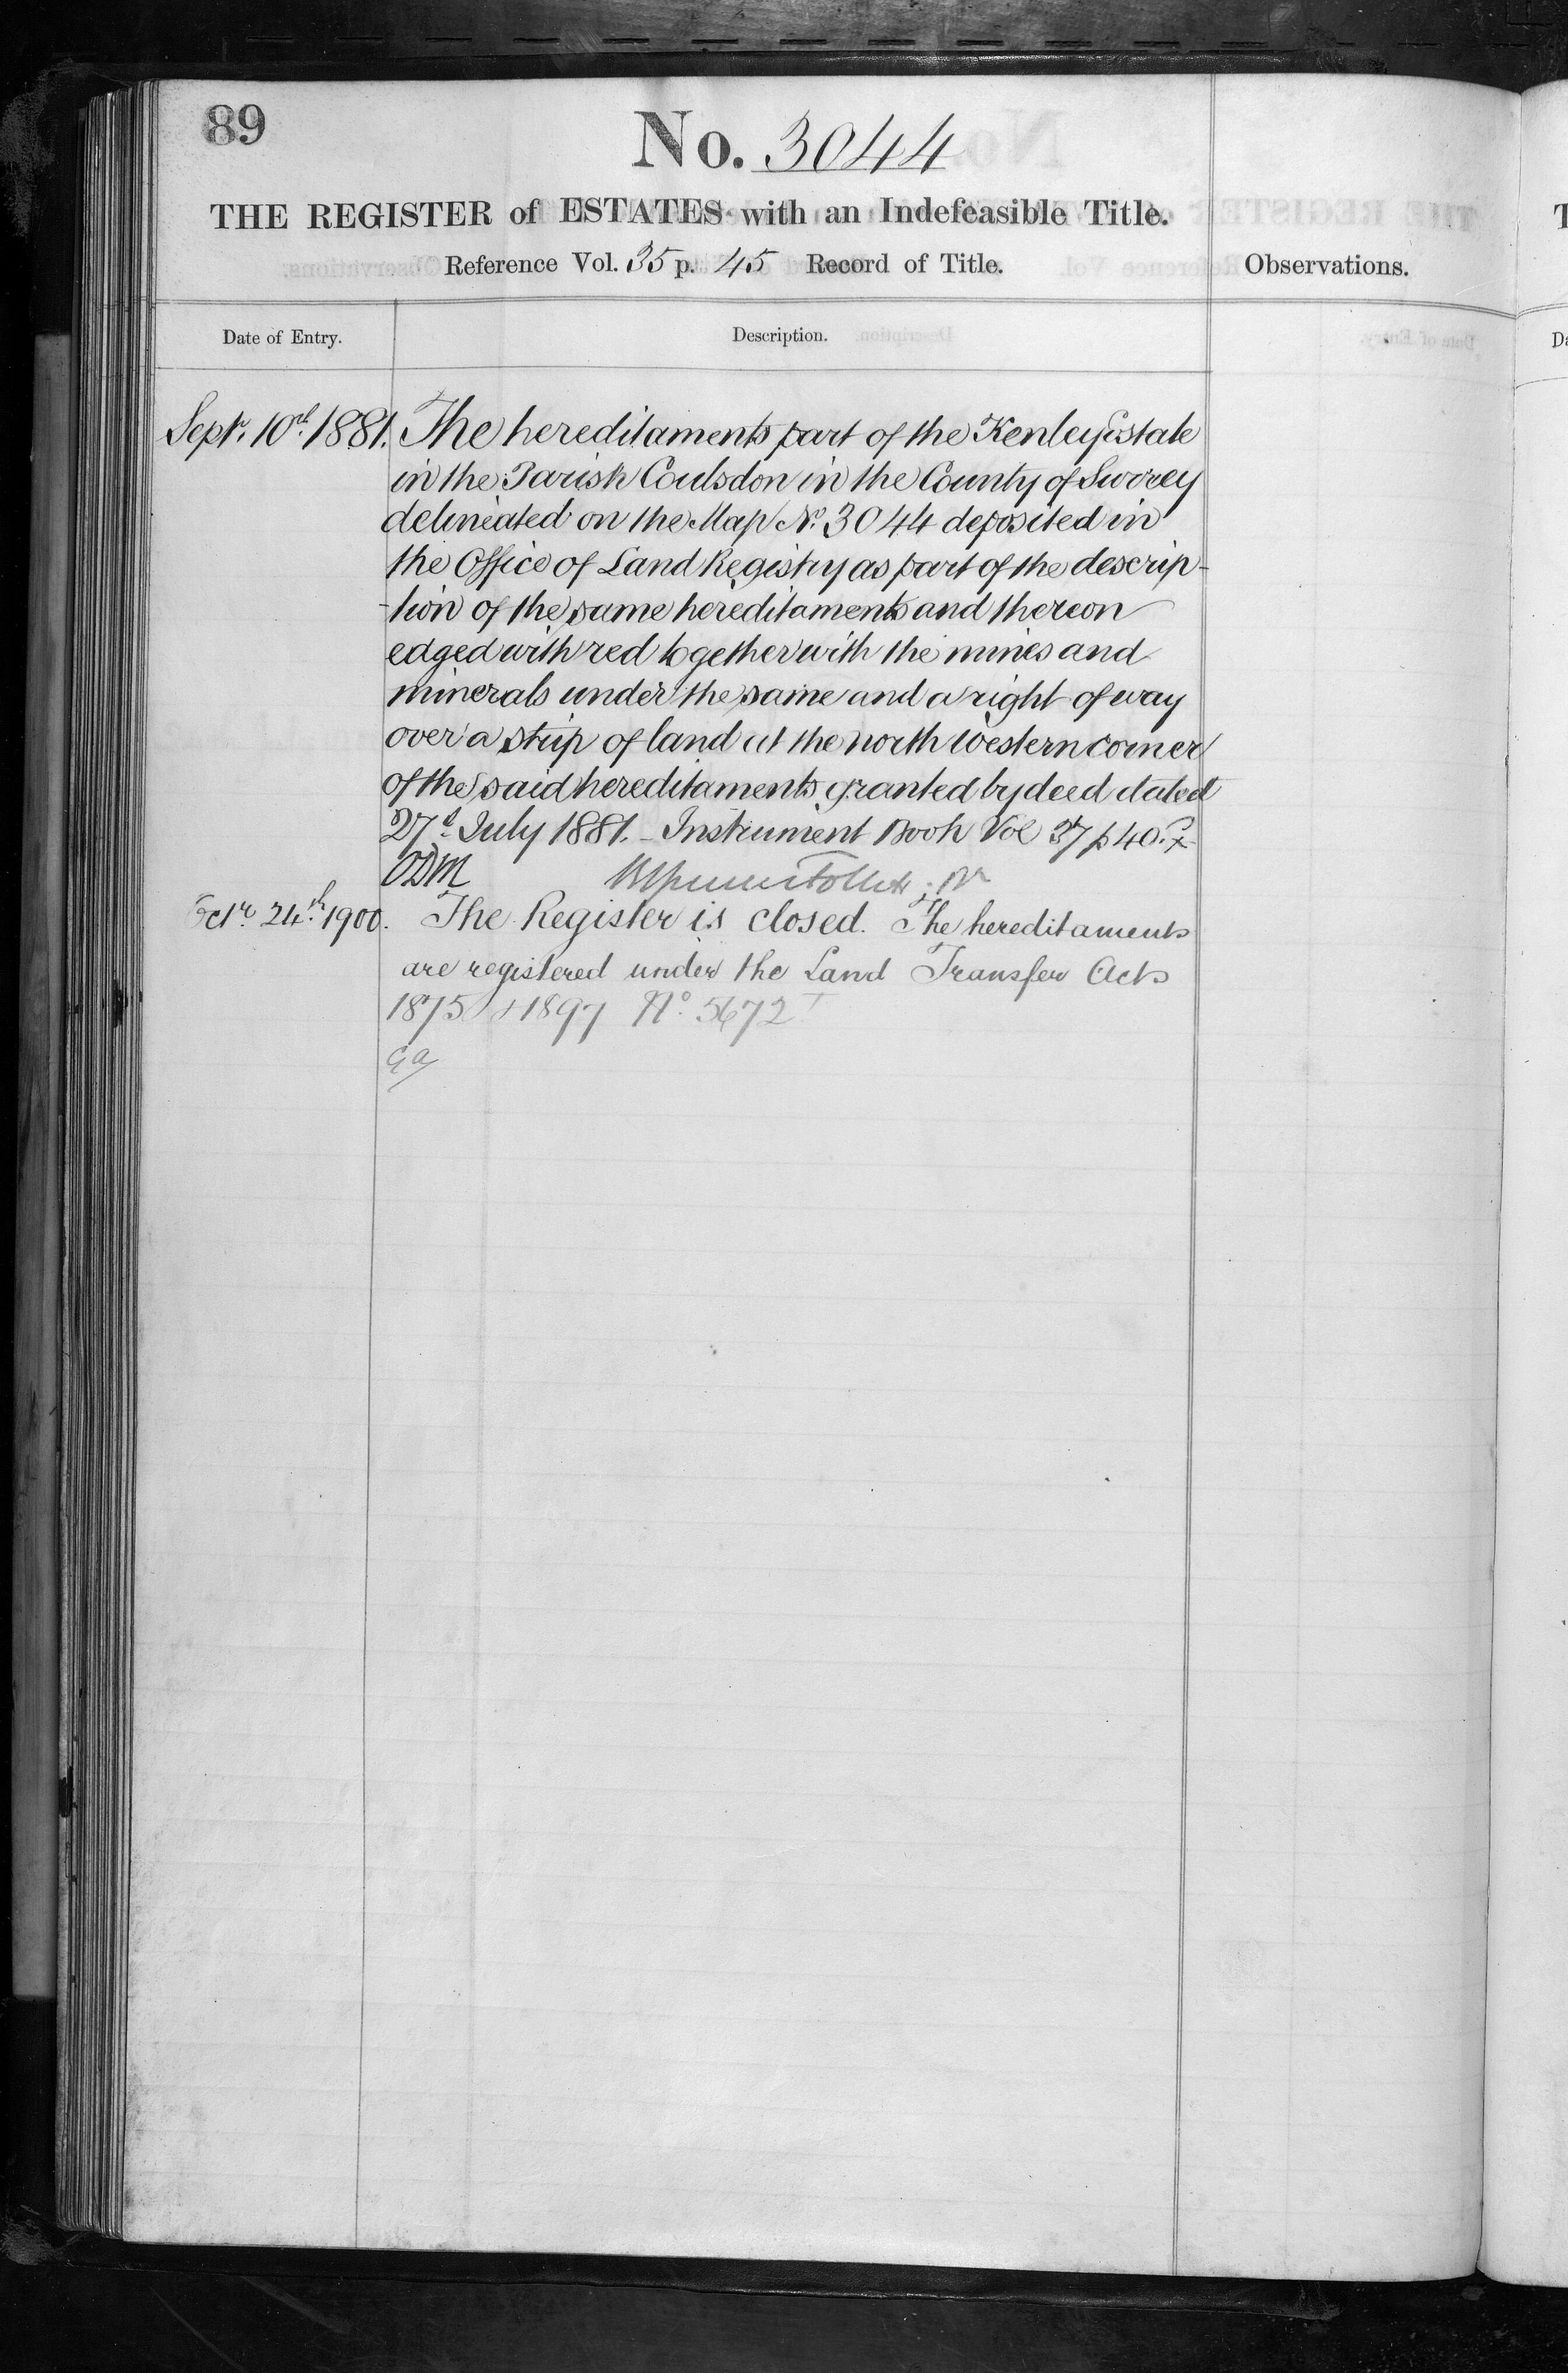 89
No. 3044
THE REGISTER of ESTATES with an Indefeasible Title.
Reference Vol. 35 p. 45 Record of Title.
Observations.
Date of Entry.
Description.
Sept. 10th 1881. The hereditaments part of the Kenley Estate
in the Parish Coulsdon in the County of Surrey
delineated on the Map No. 3044 deposited in
the Office of Land Registry as part of the descrip-
-tion of the same hereditaments and thereon
edged with red together with the mines and
minerals under the same and a right of way
over a strip of land at the north western corner
of the said hereditaments granted by deed dated
27th July 1881. - Instrument Book Vol 37 p 40.
ODM
Octr. 24th 1900. The Register is closed. The hereditaments
are registered under the Land Transfer Acts
1875 & 1897 No. 5672